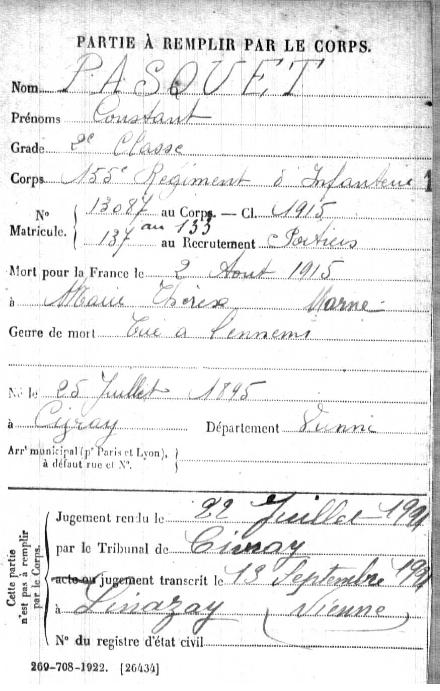 PARTIE À REMPLIR PAR LE CORPS.
Nom PASQUET
Prénoms Constant
Grade 2e Classe
Corps 155e Regiment d'Infanterie
N° Matricule. { 13087 au Corps. — Cl. 1915
au 153
137 au Recrutement Poitiers
Mort pour la France le 2 Aout 1915
à Marie Thérèse Marne
Genre de mort Tué a l'ennemi
Né le 25 Juillet 1895
à Civray Département Vienne
Arrt municipal (pr Paris et Lyon), à défaut rue et N°. }
Cette partie n'est pas à remplir par le Corps.
Jugement rendu le 22 Juillet
par le Tribunal de Civray
acte ou jugement transcrit le 13 Septembre
à Linazay (Vienne)
N° du registre d'état civil
269-708-1922. [26434]